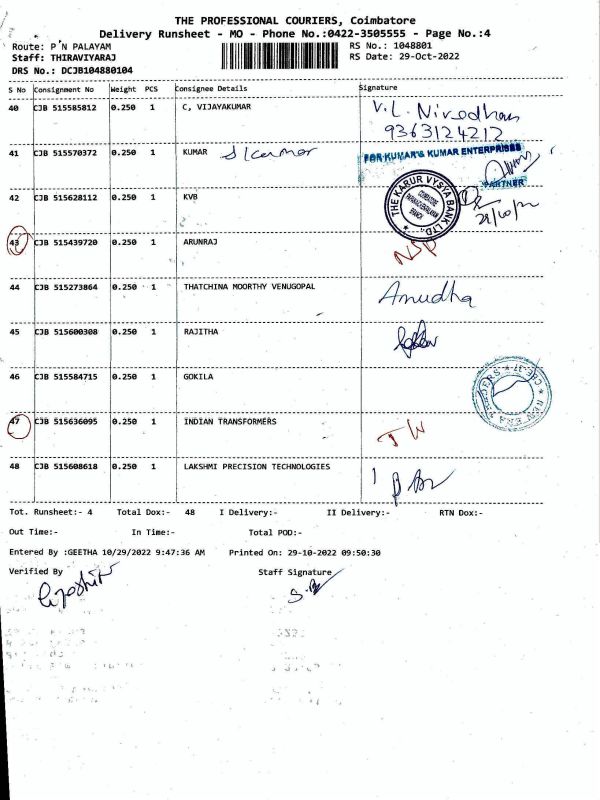 THE PROFESSIONAL COURIERS, Coimbatore
Delivery Runsheet - MO - Phone No.:0422-3505555 - Page No.:4
Route: P N PALAYAM RS No.: 1048801
Staff: THIRAVIYARAJ RS Date: 29-Oct-2022
DRS No.: DCJB104880104
S No Consignment No Weight PCS Consignee Details Signature
40 CJB 515585812 0.250 1 C, VIJAYAKUMAR V.L. Nivedhan
9363124212
41 CJB 515570372 0.250 1 KUMAR FOR KUMAR'S KUMAR ENTERPRISES
PARTNER
42 CJB 515628112 0.250 1 KVB THE KARUR VYSYA BANK LTD.,
43 CJB 515439720 0.250 1 ARUNRAJ NSP
44 CJB 515273864 0.250 1 THATCHINA MOORTHY VENUGOPAL Anudha
45 CJB 515600308 0.250 1 RAJITHA
46 CJB 515584715 0.250 1 GOKILA
47 CJB 515636095 0.250 1 INDIAN TRANSFORMERS
48 CJB 515608618 0.250 1 LAKSHMI PRECISION TECHNOLOGIES
Tot. Runsheet:- 4 Total Dox:- 48 I Delivery:- II Delivery:- RTN Dox:-
Out Time:- In Time:- Total POD:-
Entered By :GEETHA 10/29/2022 9:47:36 AM Printed On: 29-10-2022 09:50:30
Verified By Staff Signature